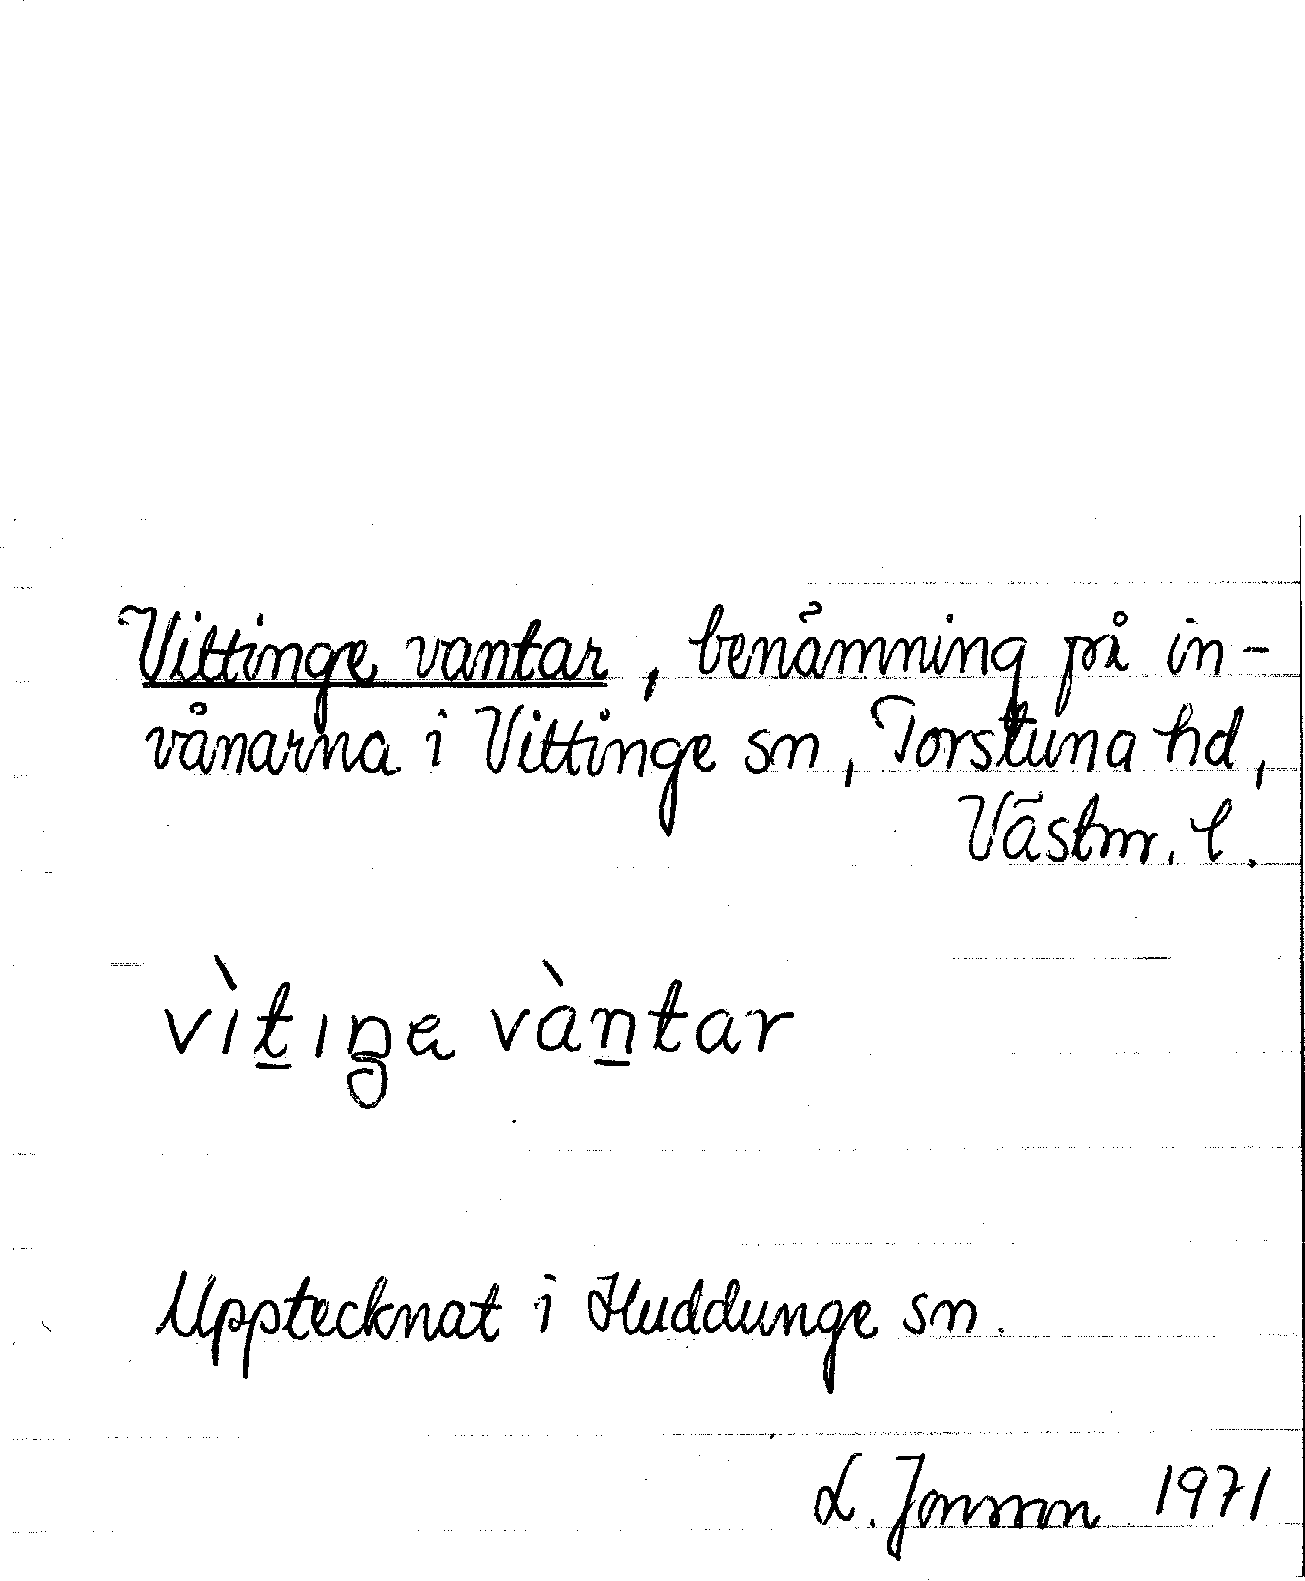 Vittinge vantar, benämning på in-
vånarna i Vittinge sn, Torstuna hd,
Västm. l.
vìt̲ıŋe vàn̲tar
Upptecknat i Huddunge sn.
L. Jonsson 1971